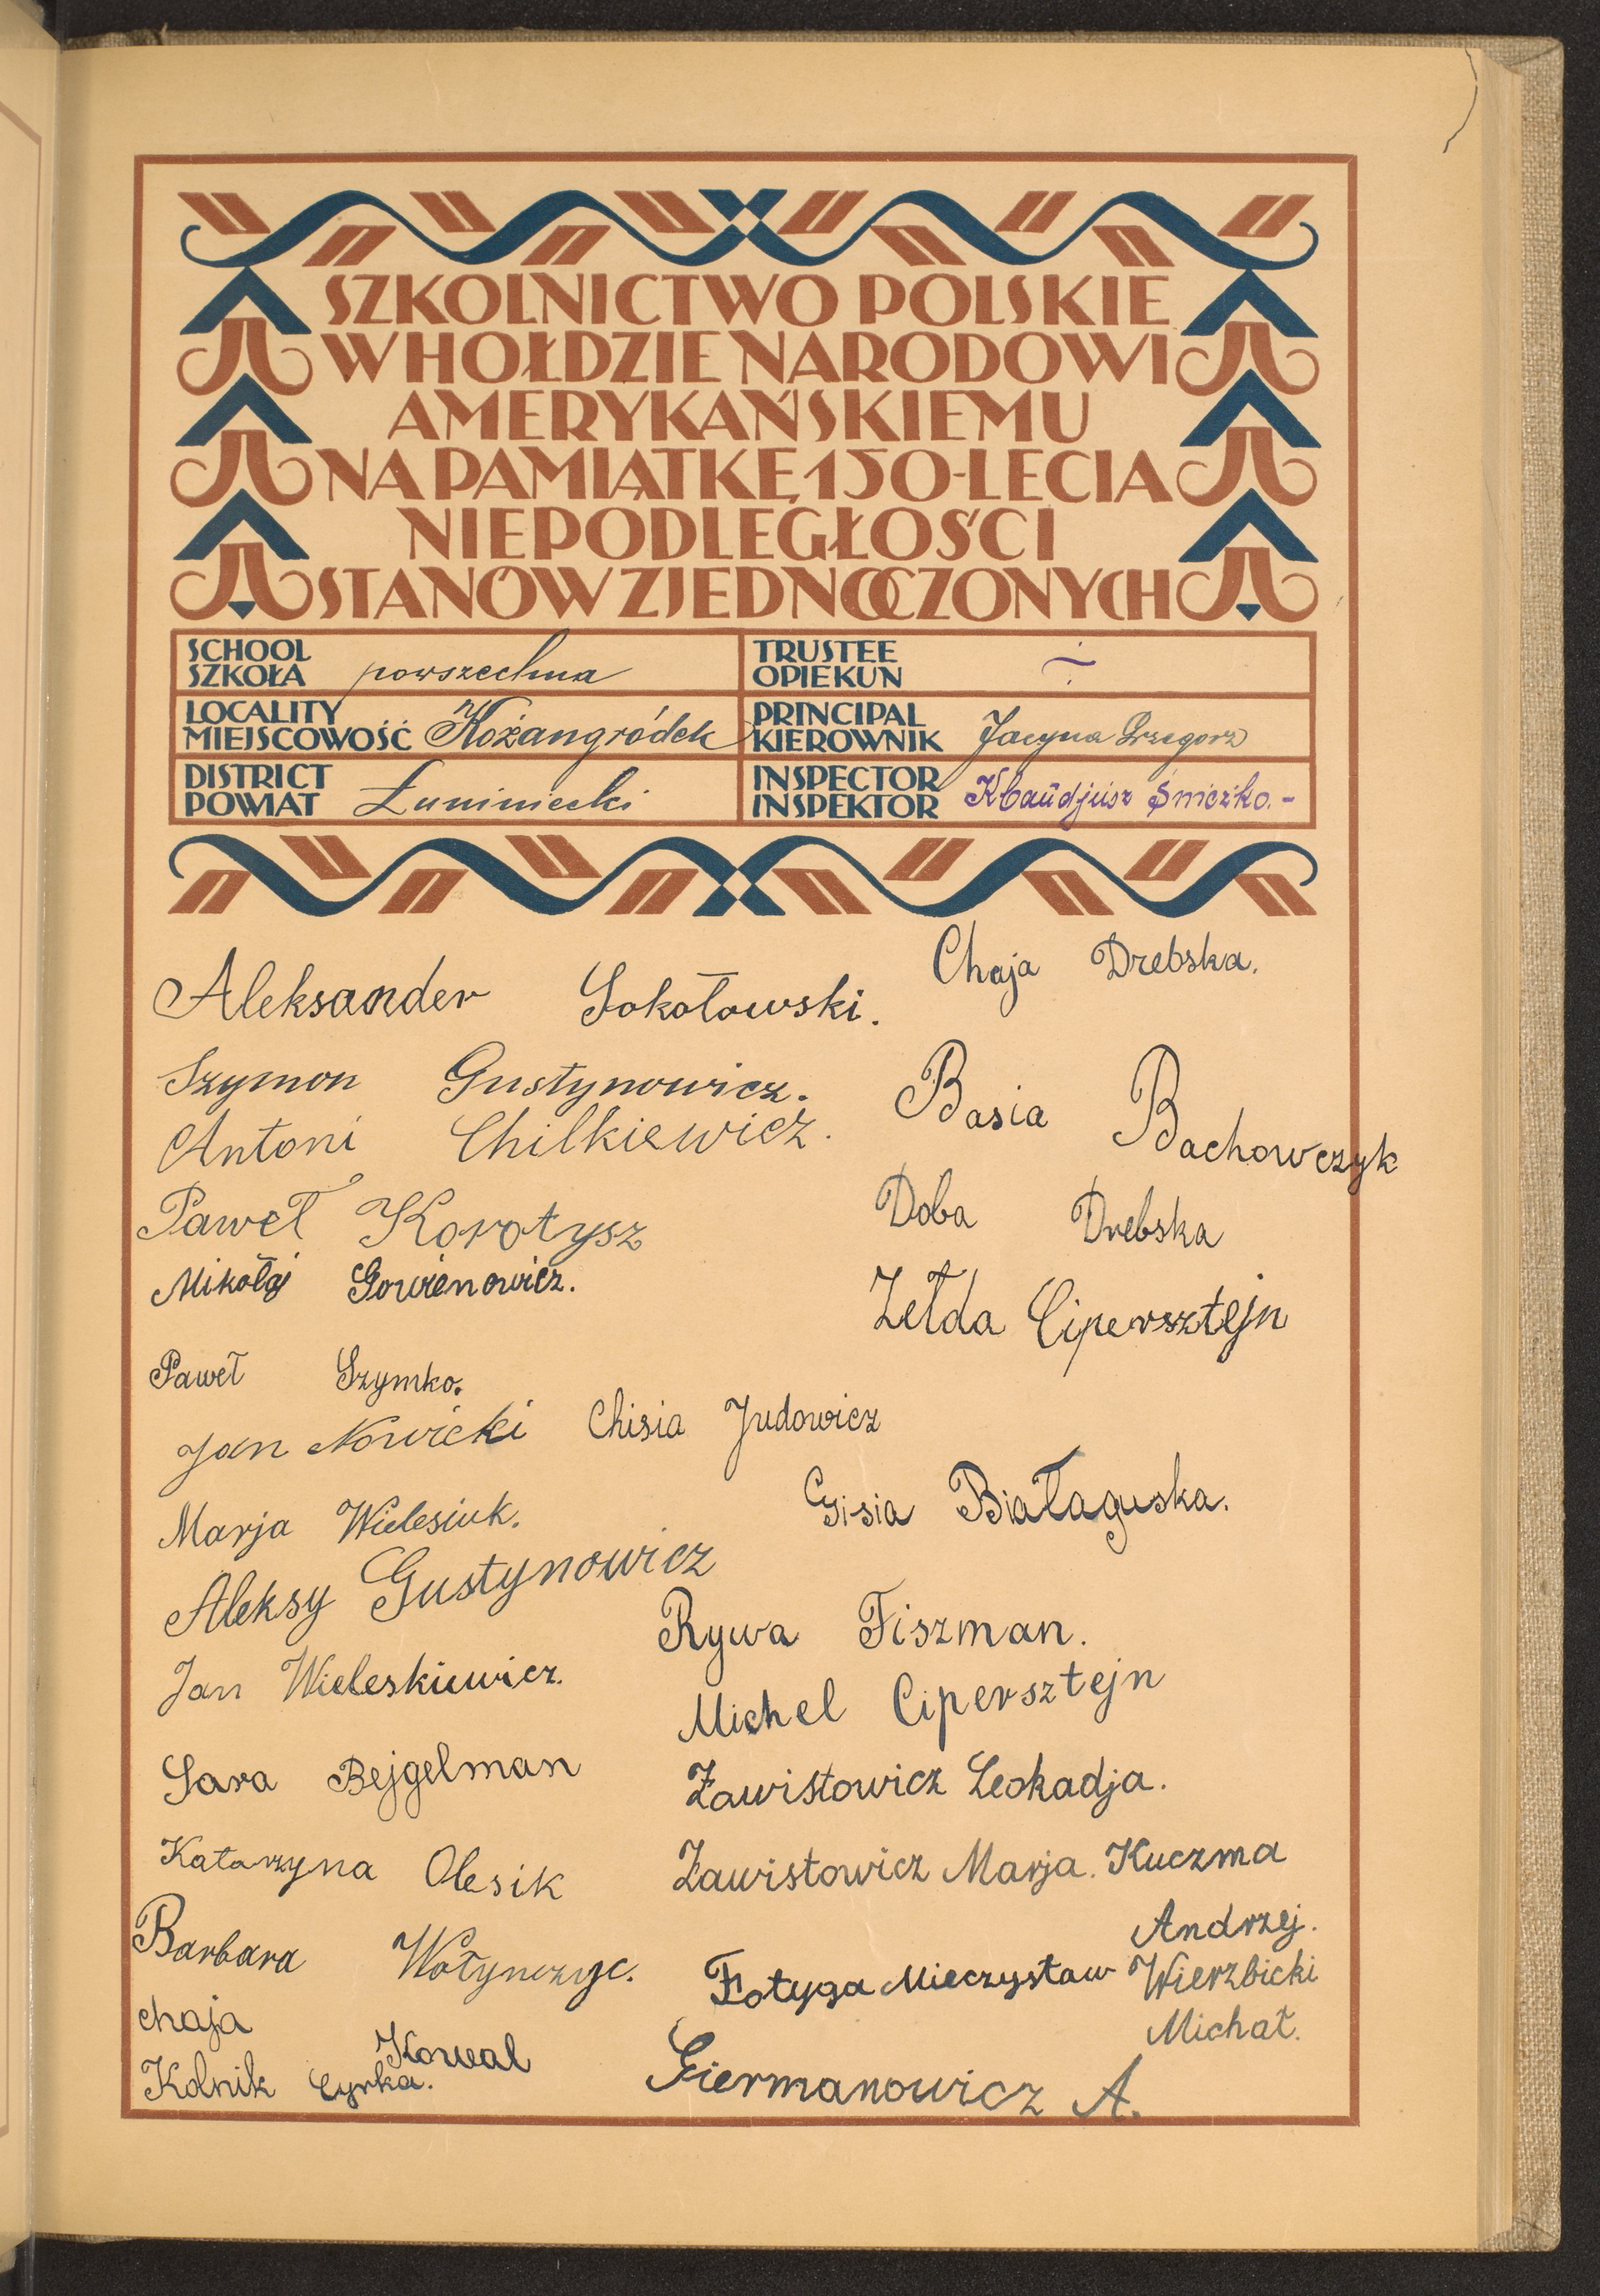 SZKOLNICTWO POLSKIE
W HOŁDZIE NARODOWI
AMERYKAŃSKIEMU
NA PAMIĄTKĘ 150-LECIA
NIEPODLEGŁOŚCI
STANÓW ZJEDNOCZONYCH
SCHOOL
SZKOŁA powszechna
TRUSTEE
OPIEKUN
LOCALITY
MIEJSCOWOŚĆ Kożangródek
PRINCIPAL
KIEROWNIK Jacyna Grzegorz
DISTRICT
POWIAT Łuniniecki
INSPECTOR
INSPEKTOR Klaudjusz Śnieżko.-
Aleksander Sokołowski.
Szymon Gustynowicz.
Antoni Chilkiewicz.
Paweł Korotysz
Mikołaj Gowienowicz.
Paweł Szymko.
Jan Nowicki
Marja Wielesiuk.
Aleksy Gustynowicz
Jan Wieleskiewicz.
Sara Bejgelman
Katarzyna Olesik
Barbara Wołynczyc.
chaja Kowal
Kolnik Cyrka.
Chaja Drebska.
Basia Bachowczyk
Doba Drebska
Zełda Cipersztejn
Chisia Judowicz
Gisia Białaguska.
Rywa Fiszman.
Michel Cipersztejn
Zawistowicz Leokadja.
Zawistowicz Marja.
Kuczma
Andrzej.
Fotyga Mieczysław
Wierzbicki
Michał.
Giermanowicz A.